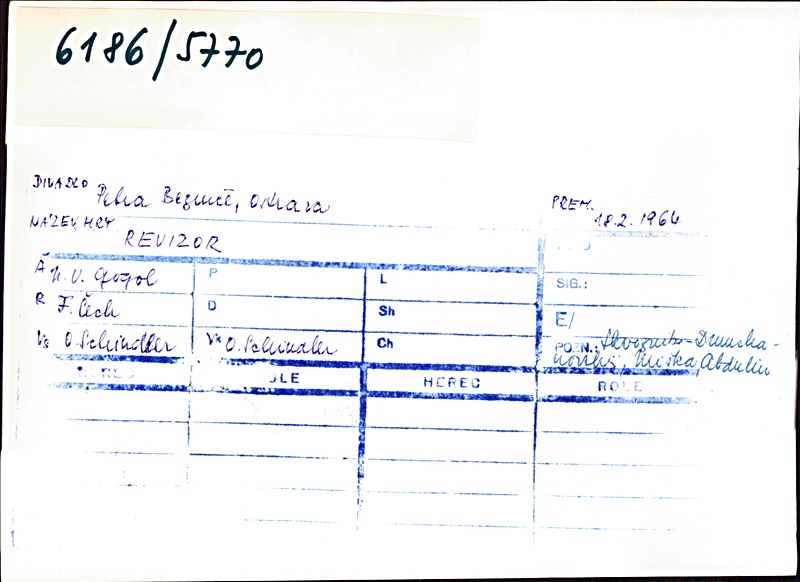 6186/5770
DIVADLO Petra Bezruče, Ostrava
PREM. 18.2.1964
NÁZEV HRY REVIZOR
A N. V. Gogol P L SIG.:
R F. Čech D Sh E/
Vs O. Schindler Vk O. Schindler Ch POZN.: Skvoznik-Dmucha-
novskij, Miška, Abdulin
HEREC ROLE